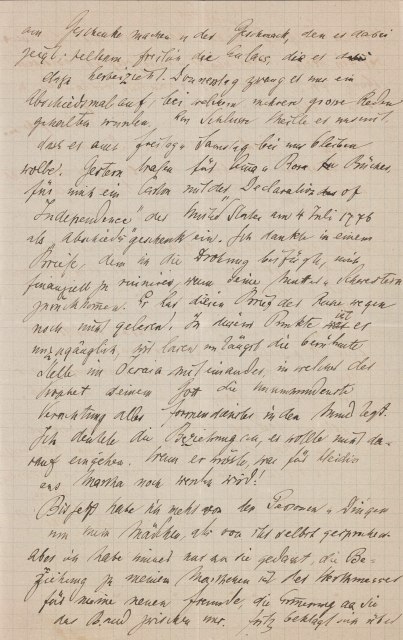 am Geschenke machen u. der Geschmack, den er dabei
zeigt
dazu herbeizieht. Donnerstag zwang er uns ein
Abschiedsmal auf, bei welchem mehrere grosse Reden
gehalten wurden, zum Schlusse teilte er uns mit,
dass er auch Freitag u. Samstag bei uns bleiben
wolle. Gestern trafen für u. Rosa Bücher,
für mich ein mit der Declaration of
Independence" der United States am 4 Juli 1776
als "Abschieds"geschenk ein. Ich dankte in einem
Briefe, dem ich die Drohung beifügte, mich
finanziell zu ruinieren, wenn seine Mutter u. Schwestern
zurückkämen. Er hat diesen Brief der Ruhe wegen
noch nicht gelesen. In diesem Punkte ist er
unzugänglich, wir lasen unlängst die berühmte
Stelle im Jesaia miteinander, in welcher der
Prophet seinem Gott die
Verachtung alles Formendienstes in den Mund legt.
Ich deutete die Beziehung an, er wollte nicht da-
rauf eingehen. Wenn er wüsste, was für
aus Martha noch werden wird!
Bis jetzt habe ich mehr von den Personen u. Dingen
um mein Mädchen, als von ihr selbst gesprochen.
Aber ich habe immer nur an sie gedacht, die Be-
ziehung zu meinem Marthchen ist das
für meine neuen Freunde, die Erinnerung an sie
das Band zwischen uns. Fritz beklagt sich über